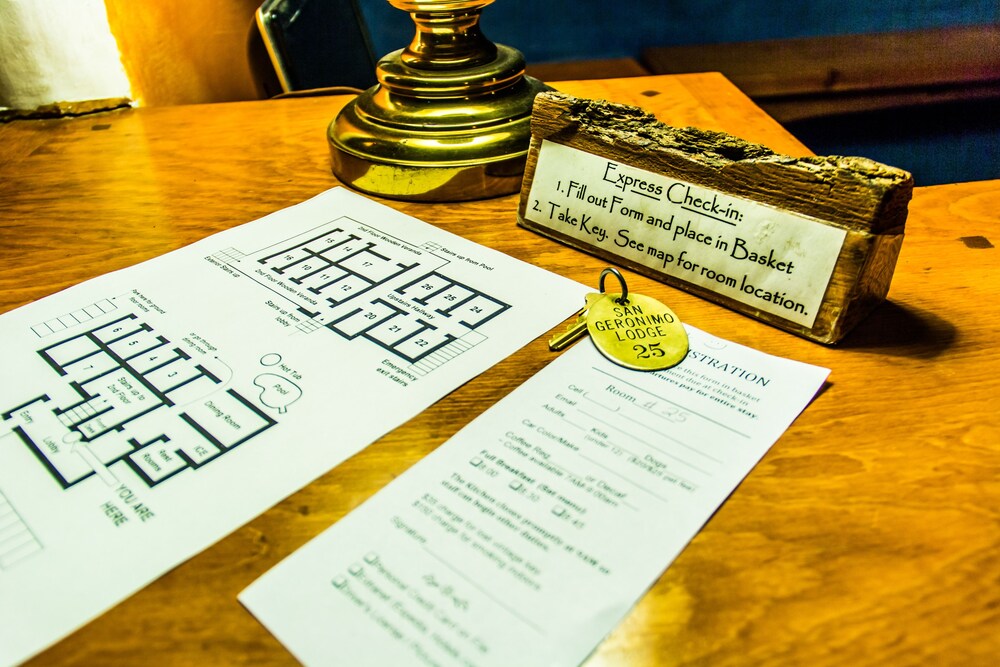 Express Check-in:
1. Fill out Form and place in Basket
2. Take Key. See map for room location.
SAN
GERONIMO
LODGE
25
2nd Floor Wooden Veranda
Stairs up from Pool
Exterior Stairs up
15
14
17
16
10
11
12
26
25
24
2nd Floor Wooden Veranda
Upstairs Hallway
Stairs up from
lobby
20
21
22
Emergency
exit stairs
6
5
4
3
7
Stairs up to
2nd Floor
dining room
Hot Tub
Pool
Dining Room
ICE
Rest
Rooms
Entry
Lobby
YOU ARE
HERE
this form in basket
due at check-in
pay for entire stay
Room # 25
Cell (
Email
Adults
Kids
(under 12)
Dogs
Car Color/Make
Coffee Reg or Decaf
Coffee available 7AM-
Full Breakfast
8:00
8:30
8:45
The Kitchen closes promptly at
staff can begin other duties.
$25 charge for lost
$150 charge for smoking
Signature